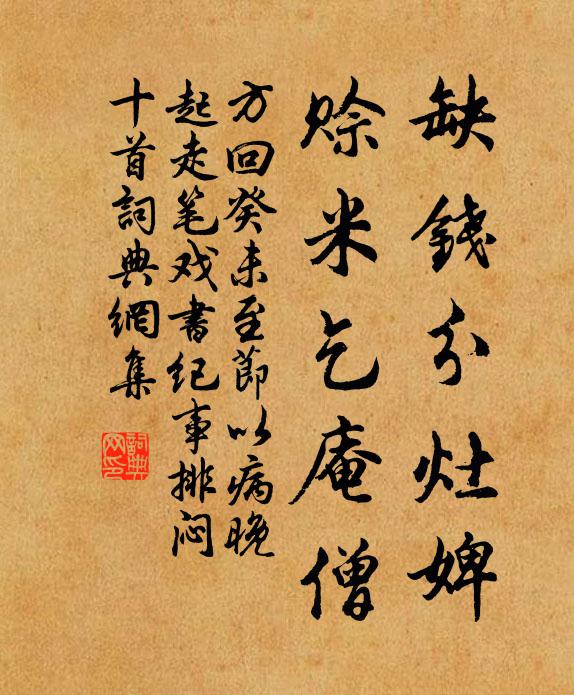 缺錢分灶婢
賒米乞庵僧
方回癸未至節以病晚
起走笔戏書纪事排闷
十首詞典網集
詞典网印